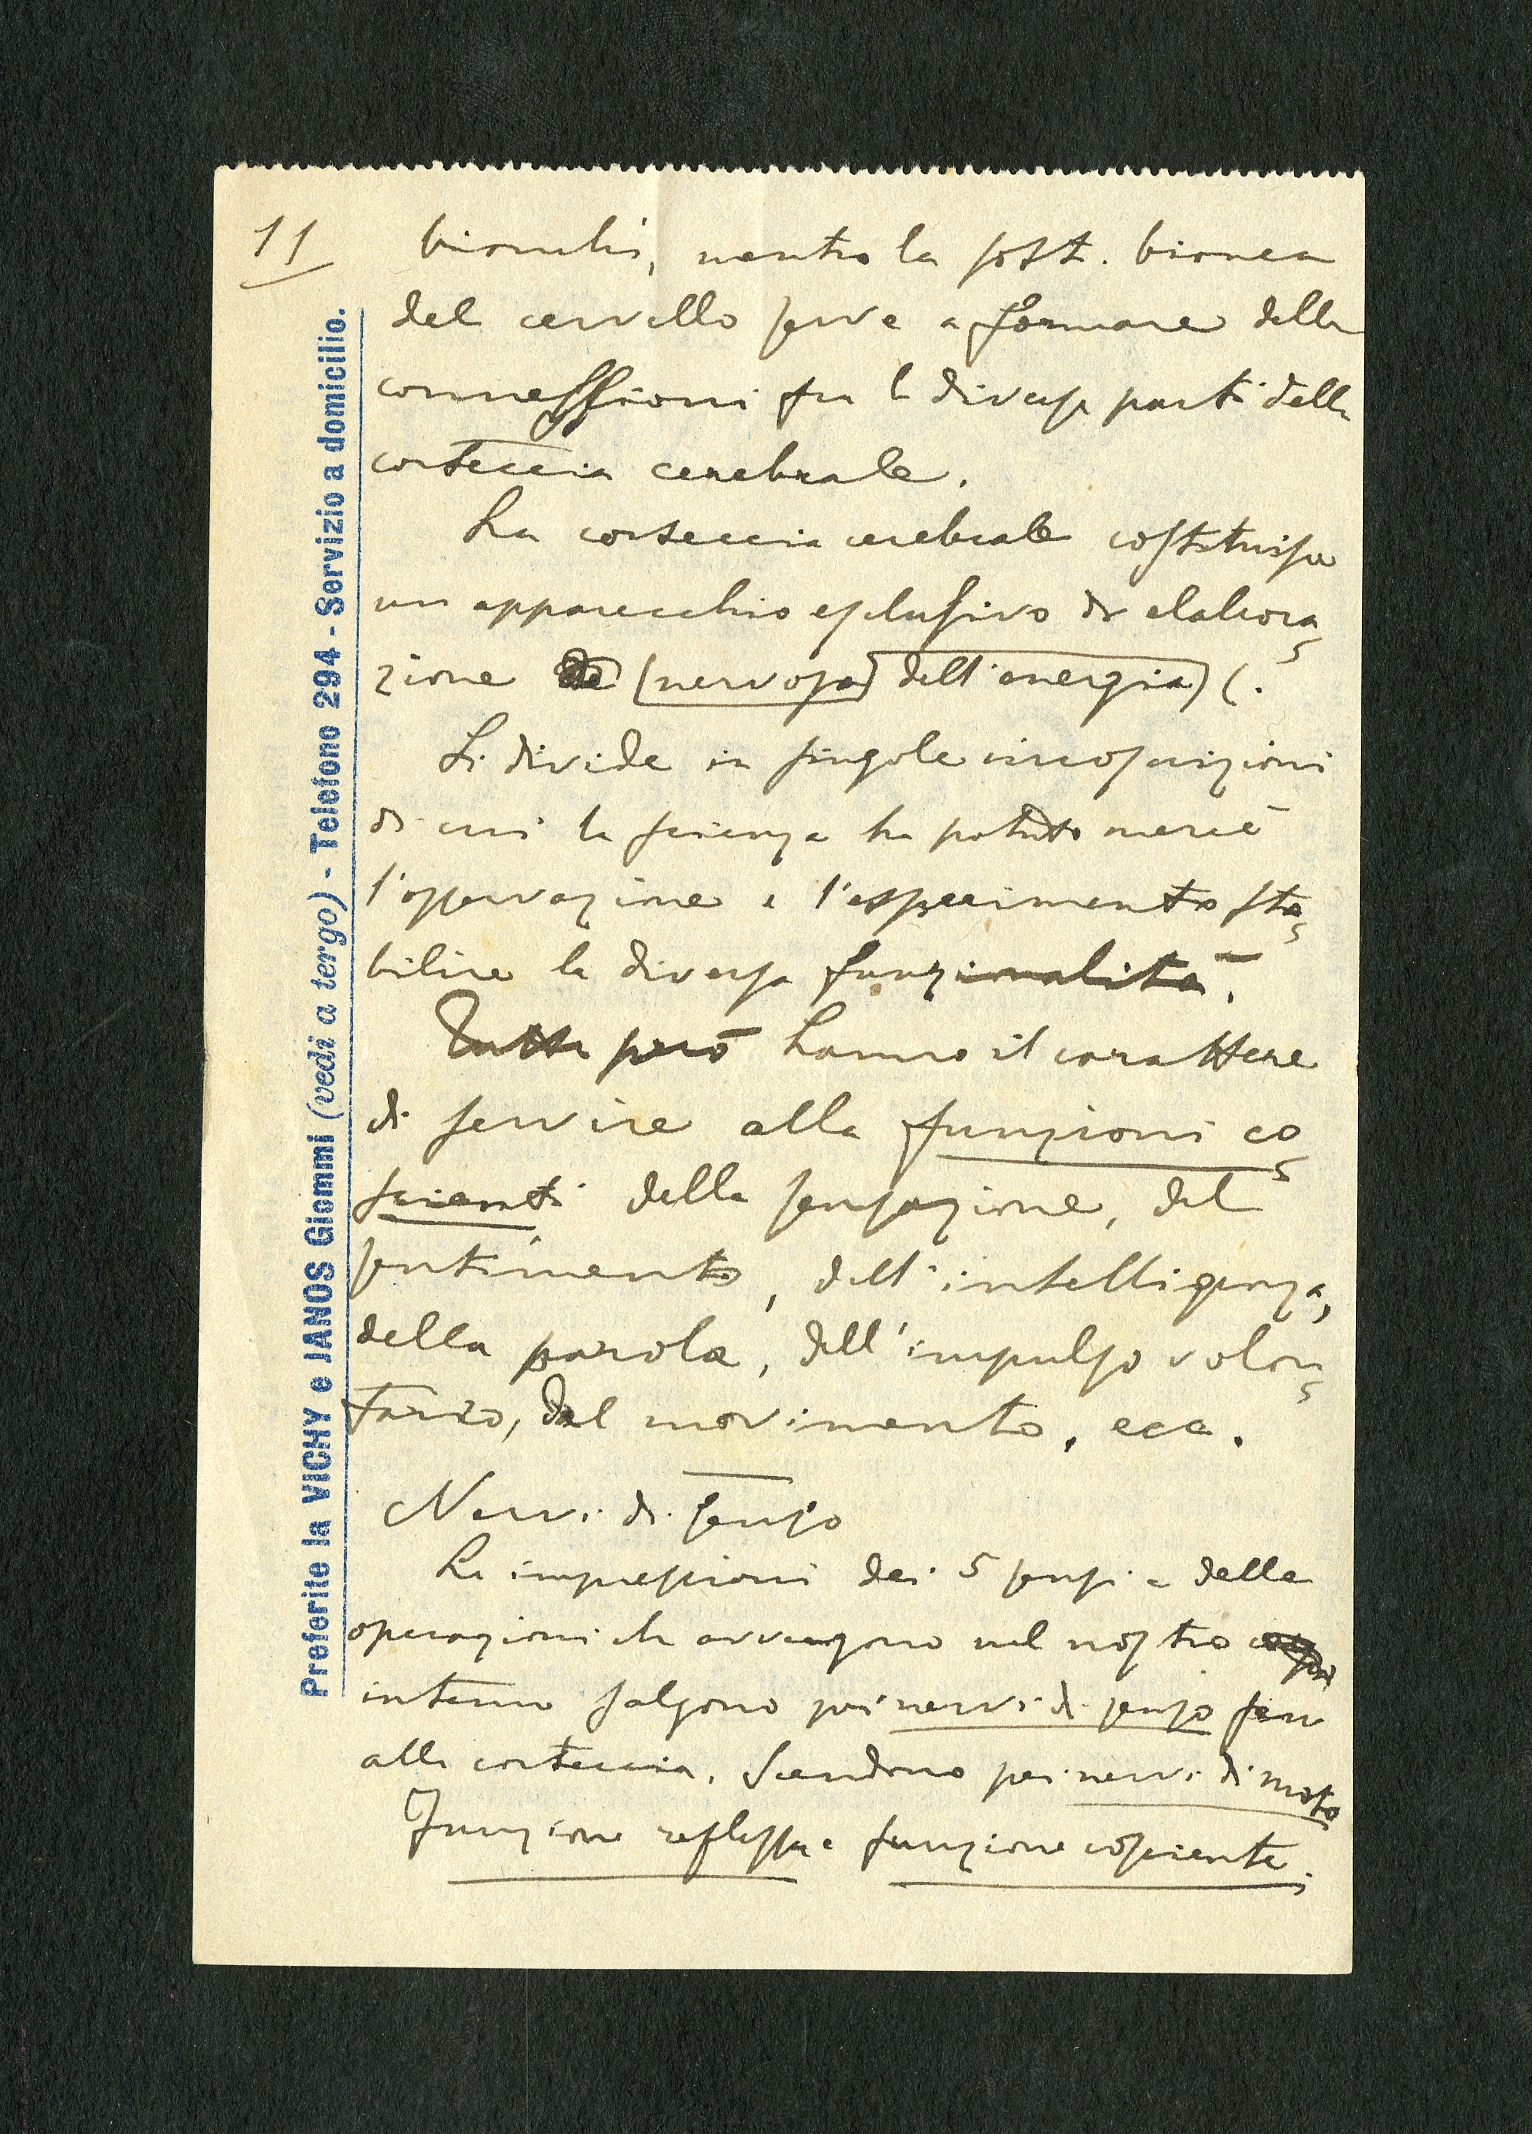 11
bianchi, mentre la sost. bianca
del cervello serve a formare delle
connessioni fra le diverse parti della
corteccia cerebrale.
La corteccia cerebrale costituisce
un apparecchio esclusivo di elabora
zione (nervosa) dell'energia) (.
Si divide in singole circonvoluzioni
di cui la scienza ha potuto mercè
l'osservazione e l'esperimento sta
bilire la diversa funzionalità.
Tutte però hanno il carattere
di servire alle funzioni co
scienti della sensazione, del
sentimento, dell'intelligenza,
della parola, dell'impulso volon
tario, del movimento, ecc.
Nervi di senso
Le impressioni dei 5 sensi e delle
operazioni che avvengono nel nostro
interno salgono pei nervi di senso fin
alla corteccia. Scendono pei nervi di moto
Funzione riflessa e funzione cosciente.
Preferite la VICHY e JANOS Giommi (vedi a tergo) - Telefono 294 - Servizio a domicilio.